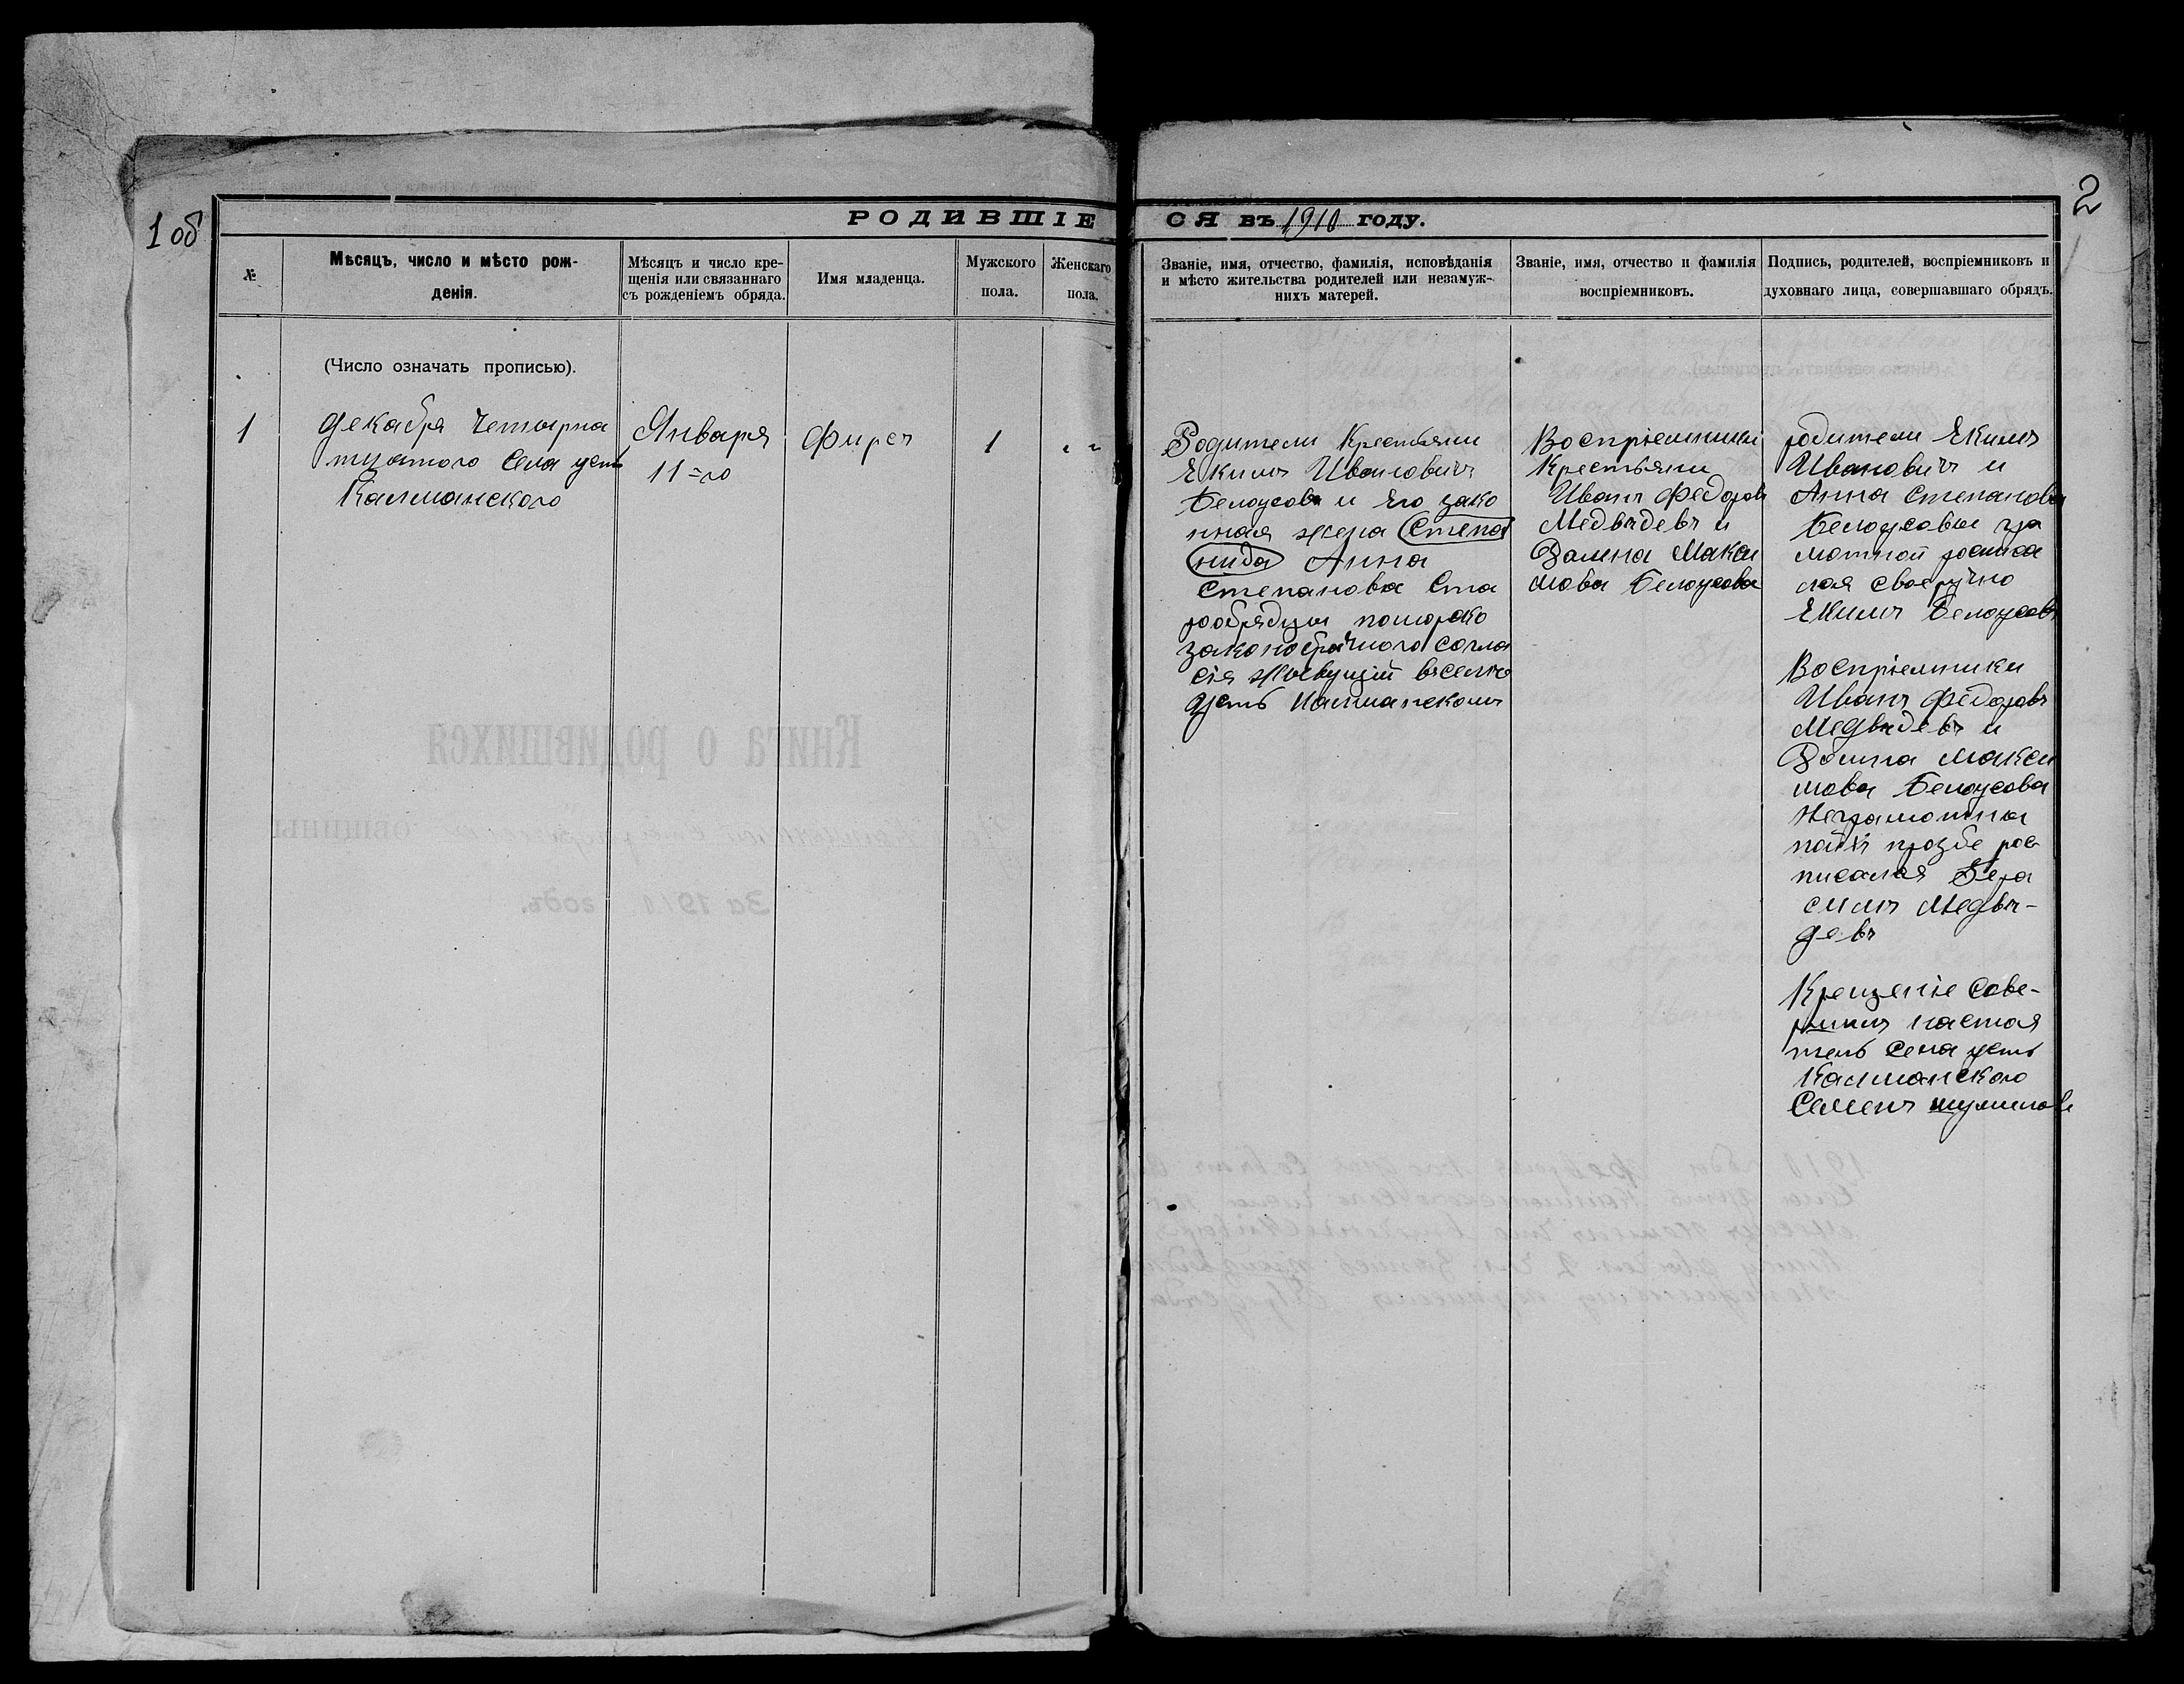 1 об
2
РОДИВШІЕ
СЯ въ 1910 году.
№
Мѣсяцъ, число и мѣсто рож-
денія.
Мѣсяцъ и число кре-
щенія или связаннаго
съ рожденіемъ обряда.
Имя младенца.
Мужского
пола.
Женскаго
пола.
Званіе, имя, отчество, фамилія, исповѣданія
и мѣсто жительства родителей или незамуж-
нихъ матерей.
Званіе, имя, отчество и фамилія
воспріемниковъ.
Подпись, родителей, воспріемниковъ и
духовнаго лица, совершавшаго обрядъ.
(Число означать прописью).
1
декабря Четырна
тцатого Села усть
Калманского
Января
11=го
Фирсъ
1
"
Родители Крестьяни
Екимъ Ивановичъ
Белоусовъ и Его зако
нная жена Степа
нида Анна
Степановна Ста
рообрядцы поморско
законобрачного согла
сія живущій въселѣ
Усть Калманскомъ
Воспріемники
Крестьяни
Иванъ Федоровъ
Медвѣдевъ и
Макси
мова Белоусова
родители Екимъ
Ивановичъ и
Анна Степановна
Белоусовы гра
мотной росписа
лся своеручно
Екимъ Белоусовъ
Воспріемники
Иванъ Федоровъ
Медвѣдевъ и
Макси
мова Белоусова
Неграмотны
прозбе рос
писался Гера
симъ Медвѣ-
девъ
Крещеніе Сове-
ршилъ настоя
тель Села усть
Калманского
Семенъ шумиловъ